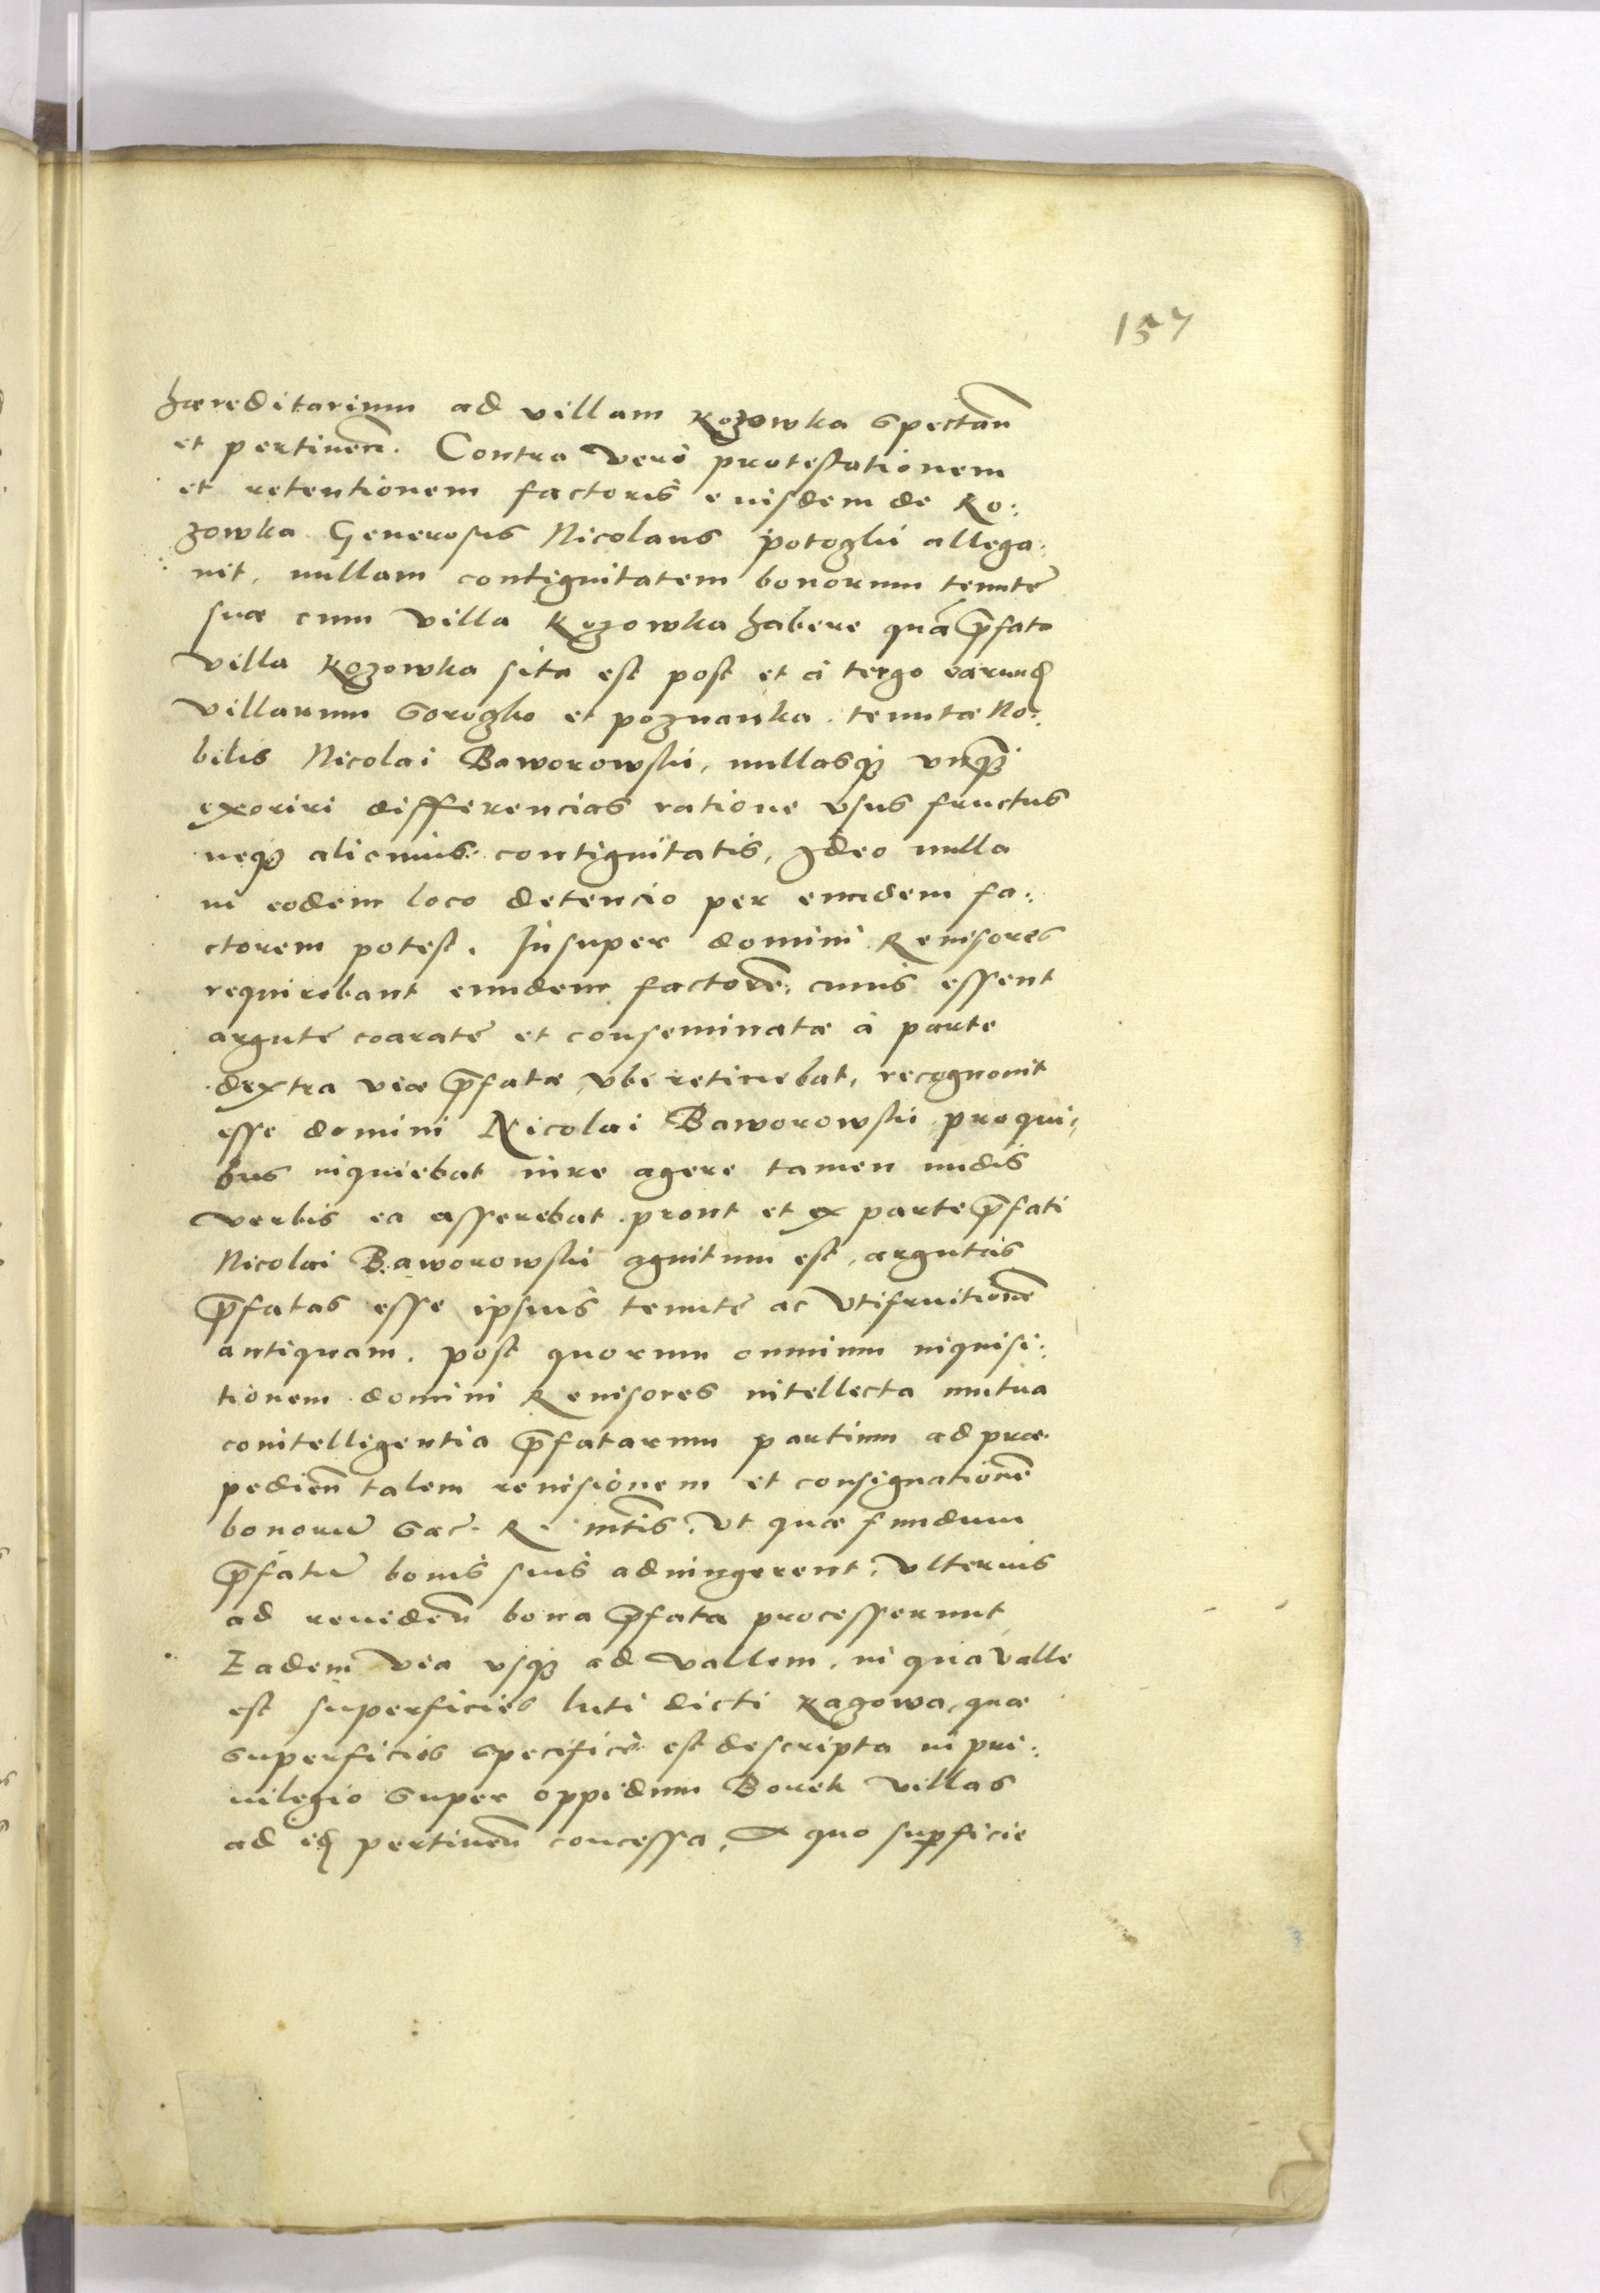 157
hæreditarium ad villam Kozowka spectan̄
et pertinen̄. Contra verò protestationem
et retentionem factoris eiusdem de Ko:
zowka Generosus Nicolaus potoczki allega:
uit, nullam contiguitatem bonorum tenutę
suæ cum villa Kozowka habere quā p̄fata
villa Kozowka sita est post et à tergo earund̄
villarum Soroczko et poznanka tenutæ No:
bilis Nicolai Baworowski, nullasq3 vnq3
exoriri differencias ratione vsus fructus
neq3 alicuius contiguitatis, Ideo nulla
in eodem loco detencio per eundem fa:
ctorem potest. Insuper domini Reuisores
requirebant eundem factorē, cuius essent
argutę coaratę et conseminatæ à parte
dextra viæ p̄fatæ, vbi retinebat, recognouit
esse domini Nicolai Baworowski pro qui:
bus inquiebat iure agere tamen nudis
verbis ea asserebat. prout et ex parte p̄fati
Nicolai Baworowski agnitum est, argutas
p̄fatas esse ipsius tenutę ac vtifruitionē
antiquam. post quorum omnium inquisi:
tionem domini Reuisores intellecta mutua
conitelligentia p̄fatarum partium ad præ
pedien̄ talem reuisionem et consignationē
bonorū Sac. R. mtis. vt quæ fundum
p̄fatū bonis suis adniugerent, vlterius
ad reuiden̄ bona p̄fata processerunt
Eadem via vsq3 ad vallem, in qua valle
est superficies luti dicti Kazowa, quæ
superficies specificè est descripta in pri:
uilegio super oppidum Borek villas
ad id̄ pertinen̄ concessa, A quo supficie